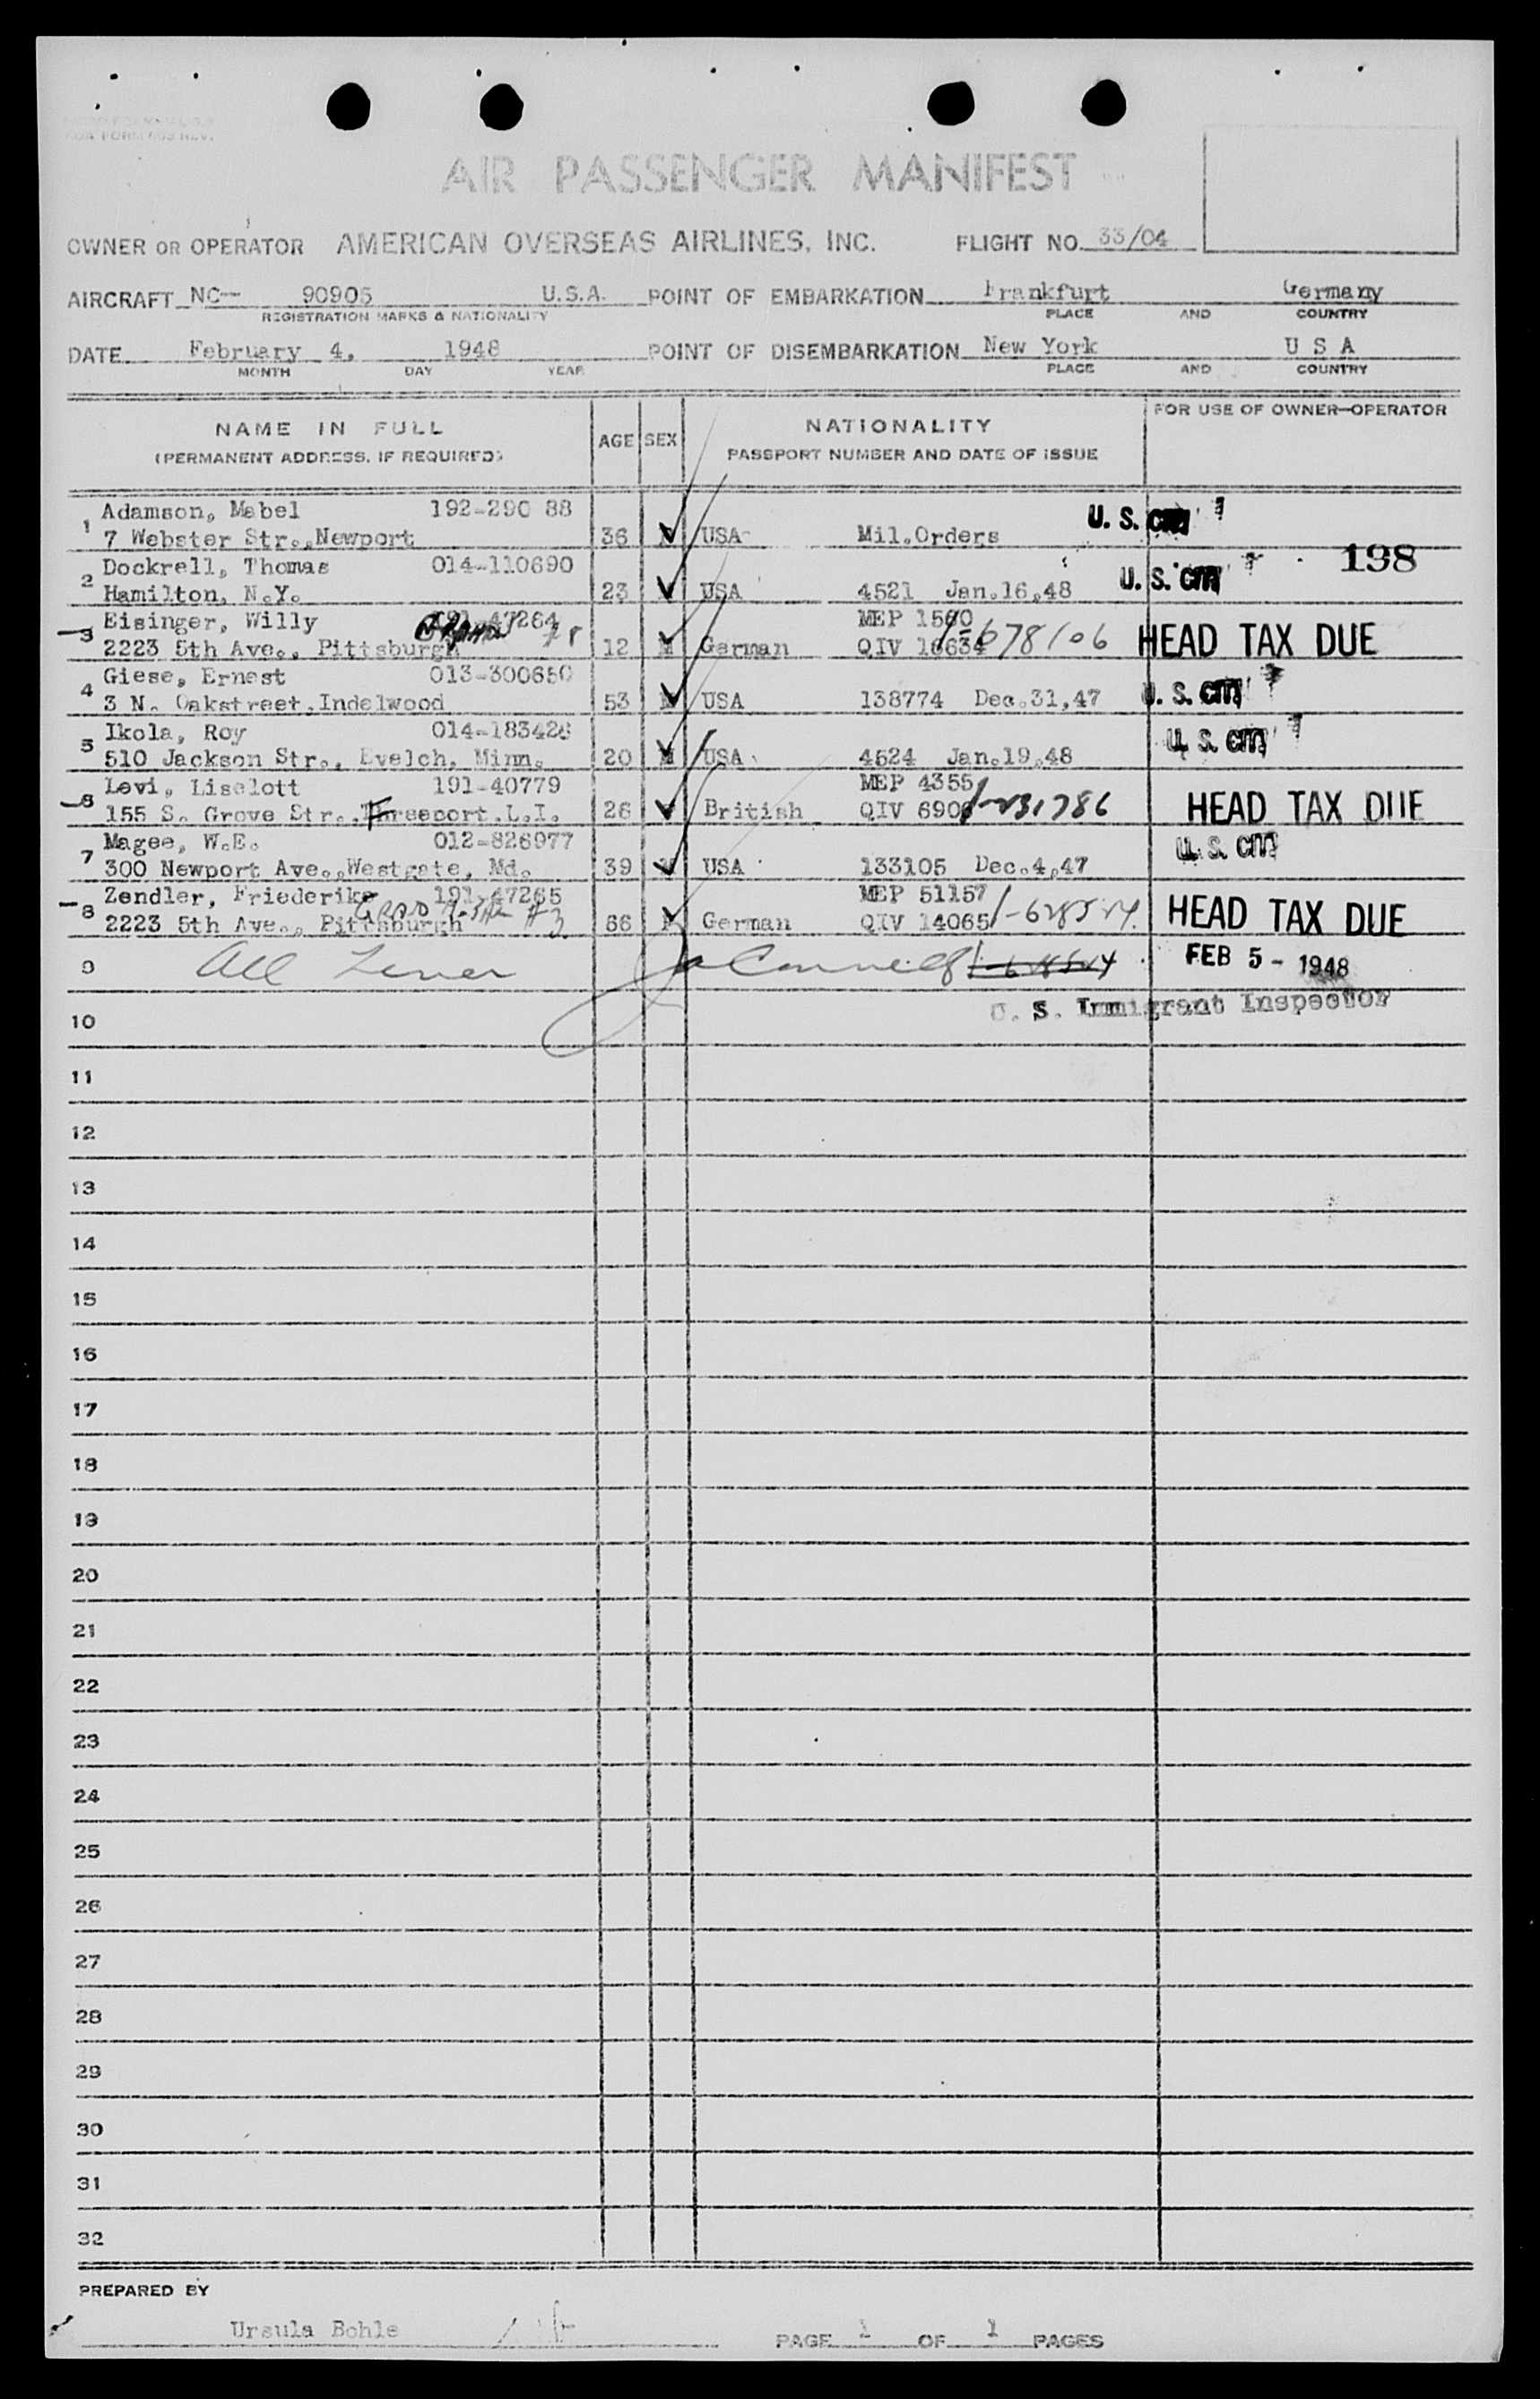 AIR PASSENGER MANIFEST
OWNER OR OPERATOR AMERICAN OVERSEAS AIRLINES, INC. FLIGHT NO. 33/04
AIRCRAFT NC-- 90905 U.S.A. POINT OF EMBARKATION Frankfurt Germany
REGISTRATION MARKS & NATIONALITY PLACE AND COUNTRY
DATE February 4, 1948 POINT OF DISEMBARKATION New York U S A
MONTH DAY YEAR PLACE AND COUNTRY
NAME IN FULL AGE SEX NATIONALITY FOR USE OF OWNER-OPERATOR
(PERMANENT ADDRESS, IF REQUIRED) PASSPORT NUMBER AND DATE OF ISSUE
1 Adamson, Mabel 192-290 88 U. S. cm
7 Webster Str.,Newport 36 USA Mil.Orders
198
2 Dockrell, Thomas 014-110690
Hamilton, N.Y. 23 USA 4521 Jan.16,48 U. S. cm
3 Eisinger, Willy 191-47264 MEP 1560
2223 5th Ave., Pittsburgh 12 M German QIV 16634 678106 HEAD TAX DUE
4 Giese, Ernest 013-300650
3 N. Oakstreet,Indelwood 53 M USA 138774 Dec.31,47 U. S. cm
5 Ikola, Roy 014-183426 U. S. cm
510 Jackson Str., Evelch, Minn. 20 M USA 4524 Jan.19,48
6 Levi, Liselott 191-40779 MEP 4355
155 S. Grove Str., Freeport,L.I. 26 British QIV 6906 HEAD TAX DUE
7 Magee, W.E. 012-826977 U. S. cm
300 Newport Ave.,Westgate, Md. 39 USA 133105 Dec.4,47
8 Zendler, Friederike 191-47265 MEP 51157
2223 5th Ave., Pittsburgh 66 German QIV 14065 HEAD TAX DUE
9 All FEB 5 - 1948
U. S. Immigrant Inspector
10
11
12
13
14
15
16
17
18
19
20
21
22
23
24
25
26
27
28
29
30
31
32
PREPARED BY
Ursula Bohle PAGE 1 OF 1 PAGES